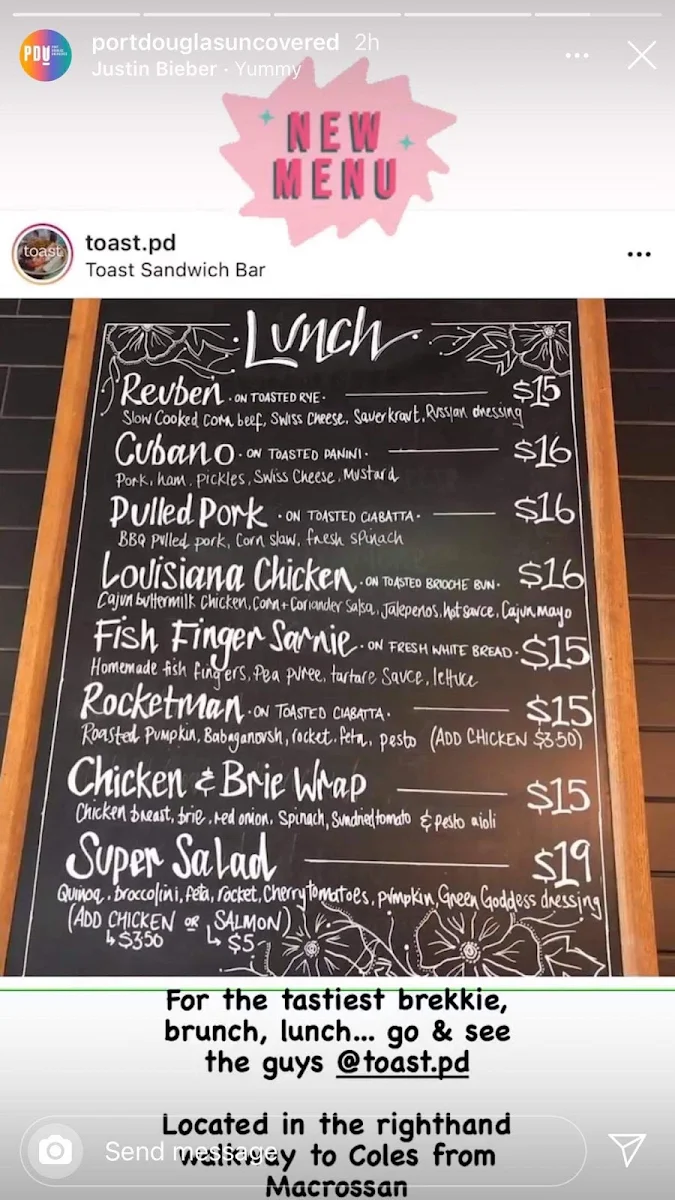 PDU
portdouglasuncovered 2h
Justin Bieber · Yummy
NEW
MENU
toast
toast.pd
Toast Sandwich Bar
Lunch
Reuben · ON TOASTED RYE · $15
Slow Cooked Corn beef, Swiss Cheese, Sauerkraut, Russian dressing
Cubano · ON TOASTED PANINI · $16
Pork, ham, pickles, Swiss Cheese, Mustard
Pulled Pork · ON TOASTED CIABATTA · $16
BBQ pulled pork, Corn slaw, fresh spinach
Louisiana Chicken · ON TOASTED BRIOCHE BUN · $16
Cajun buttermilk Chicken, Corn + Coriander Salsa, Jalepenos, hot sauce, Cajun mayo
Fish Finger Sarnie · ON FRESH WHITE BREAD · $15
Homemade fish fingers, Pea puree, tartare sauce, lettuce
Rocketman · ON TOASTED CIABATTA · $15
Roasted Pumpkin, Babaganoush, rocket, feta, pesto (ADD CHICKEN $3.50)
Chicken & Brie Wrap $15
Chicken breast, brie, red onion, Spinach, Sundried tomato & pesto aioli
Super Salad $19
Quinoa, broccolini, feta, rocket, Cherry tomatoes, pumpkin, Green Goddess dressing
(ADD CHICKEN OR SALMON)
↳ $3.50 ↳ $5
For the tastiest brekkie,
brunch, lunch... go & see
the guys @toast.pd
Located in the righthand
walkway to Coles from
Macrossan
Send message